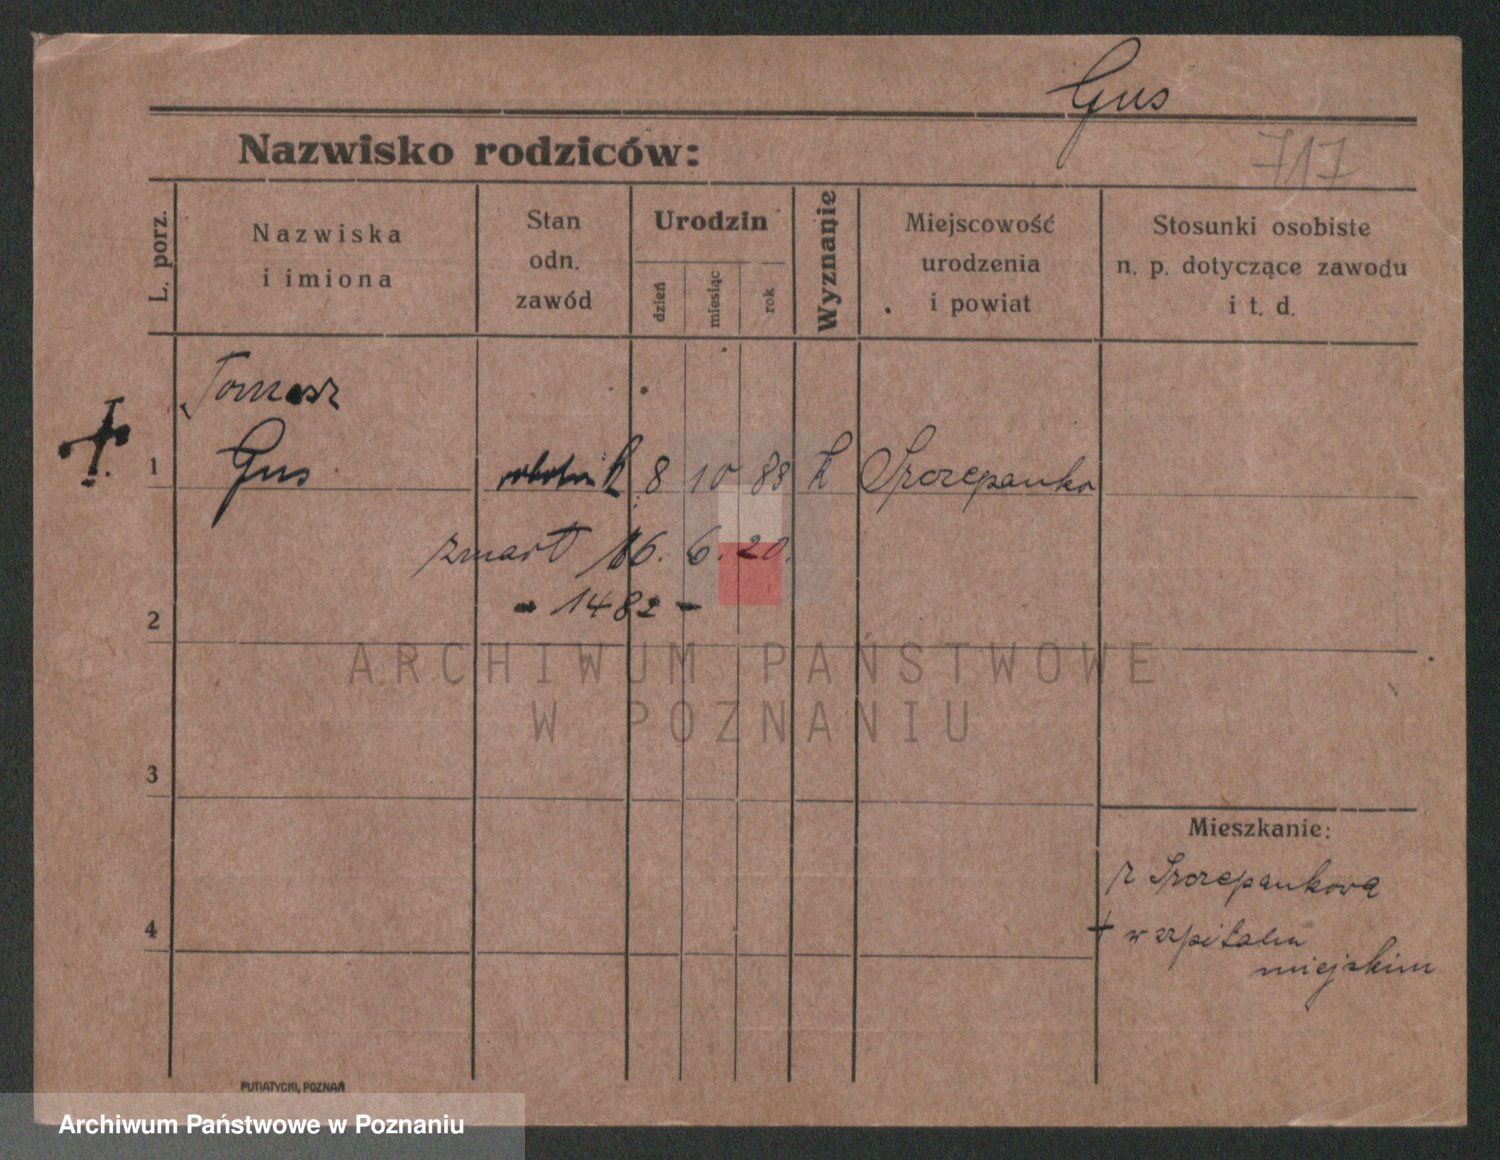 Gus
717
Nazwisko rodziców:
L. porz.
Nazwiska
i imiona
Stan
odn.
zawód
Urodzin
dzień
miesiąc
rok
Wyznanie
Miejscowość
urodzenia
i powiat
Stosunki osobiste
n. p. dotyczące zawodu
i t. d.
Tomasz
1 Gus robotnik 8 10 88 k. Szczepanko
zmarł 16. 6. 20.
2 - 1482 -
ARCHIWUM PAŃSTWOWE
W POZNANIU
3
Mieszkanie:
z Szczepankowa
4 + w szpitalu
miejskim
PUTIATYCKI, POZNAŃ
Archiwum Państwowe w Poznaniu